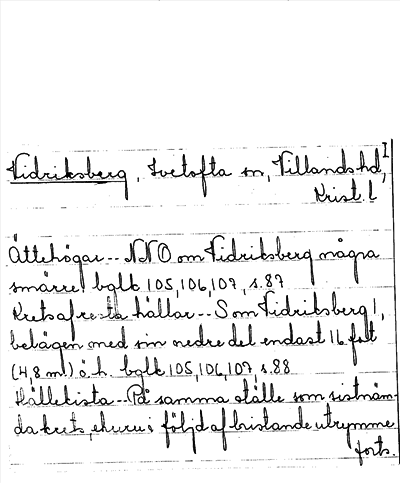 I
Vidriksberg, Ivetofta sn, Villands hd,
Krist. l
Ättehögar -- NNO om Vidriksberg några
smärre! bglb 105, 106, 107, s. 87
Krets af resta hällar -- S om Vidriksberg 1,
belägen med sin nedre del endast 16 fot
(4,8 m.) ö. h. bglb 105, 106, 107, s. 88
Hällekista -- På samma ställe som sistnäm-
da krets, ehuru i följd af bristande utrymme
forts.